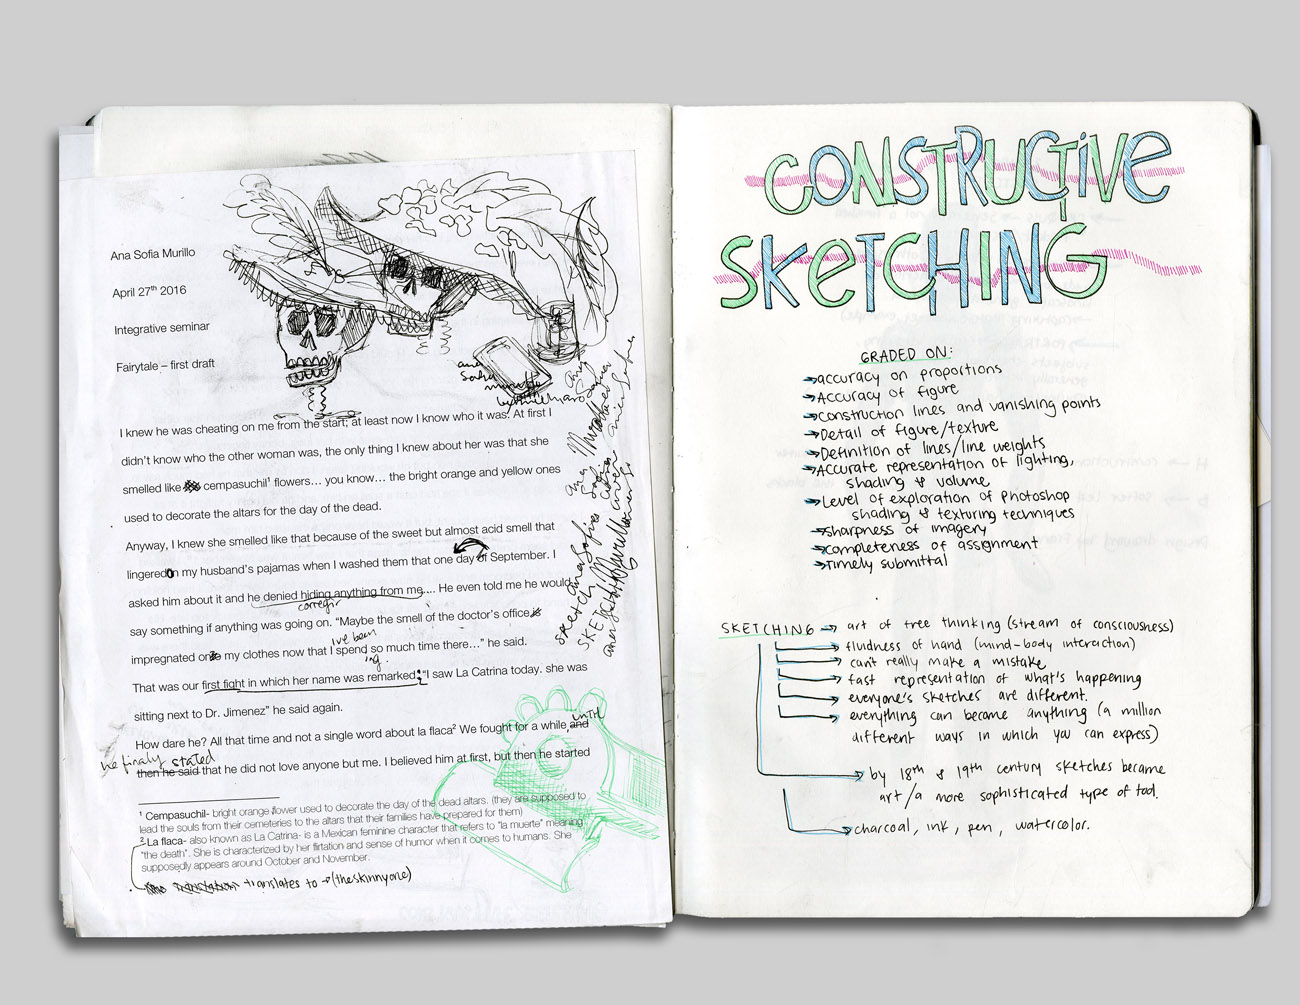 Ana Sofia Murillo
April 27th 2016
Integrative seminar
Fairytale – first draft
I knew he was cheating on me from the start; at least now I know who it was. At first I
didn't know who the other woman was, the only thing I knew about her was that she
smelled like cempasuchil¹ flowers… you know… the bright orange and yellow ones
used to decorate the altars for the day of the dead.
Anyway, I knew she smelled like that because of the sweet but almost acid smell that
lingered on my husband's pajamas when I washed them that one day of September. I
asked him about it and he denied hiding anything from me.... He even told me he would
corregir
say something if anything was going on. "Maybe the smell of the doctor's office
I've been
impregnated on my clothes now that I spend so much time there…" he said.
ing.
That was our first fight in which her name was remarked: "I saw La Catrina today. she was
sitting next to Dr. Jimenez" he said again.
until
How dare he? All that time and not a single word about la flaca² We fought for a while and
he finaly stated
then he said that he did not love anyone but me. I believed him at first, but then he started
¹ Cempasuchil- bright orange flower used to decorate the day of the dead altars. (they are supposed to
lead the souls from their cemeteries to the altars that their families have prepared for them)
² La flaca- also known as La Catrina- is a Mexican feminine character that refers to "la muerte" meaning
"the death". She is characterized by her flirtation and sense of humor when it comes to humans. She
supposedly appears around October and November.
translates to → (theskinnyone)
ana
Sofia
murillo
CONSTRUCTIVE
SKETCHING
GRADED ON:
→accuracy on proportions
→Accuracy of figure
→construction lines and vanishing points
→Detail of figure/texture
→Definition of lines/line weights
→Accurate representation of lighting,
shading & volume
→Level of exploration of Photoshop
shading & texturing techniques
→sharpness of imagery
→completeness of assignment
→timely submittal
SKETCHING → art of free thinking (stream of consciousness)
→ fluidness of hand (mind-body interaction)
→ can't really make a mistake
→ fast representation of what's happening
→ everyone's sketches are different.
→ everything can become anything (a million
different ways in which you can express)
→ by 18th & 19th century sketches became
art/a more sophisticated type of tool.
→ charcoal, ink, pen, watercolor.